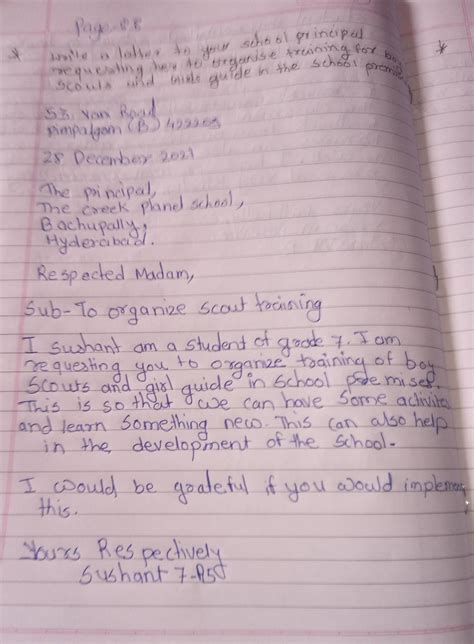 Page 88
* write a latter to your school principal
requesting her to organise training for boy
scouts and girls guide in the school premises
53, Van Road
Pimpalgaon (B) 422209
28 December 2021
The principal,
The creek planel school,
Bachupally,
Hyderabad.
Respected Madam,
Sub-To organize scout training
I sushant am a student of grade 7. I am
requesting you to organize training of boy
scouts and girl guide in school premises.
This is so that we can have some activita
and learn something new. This can also help
in the development of the school.
I would be grateful if you would implement
this.
Yours Respectively
Sushant 7-R5